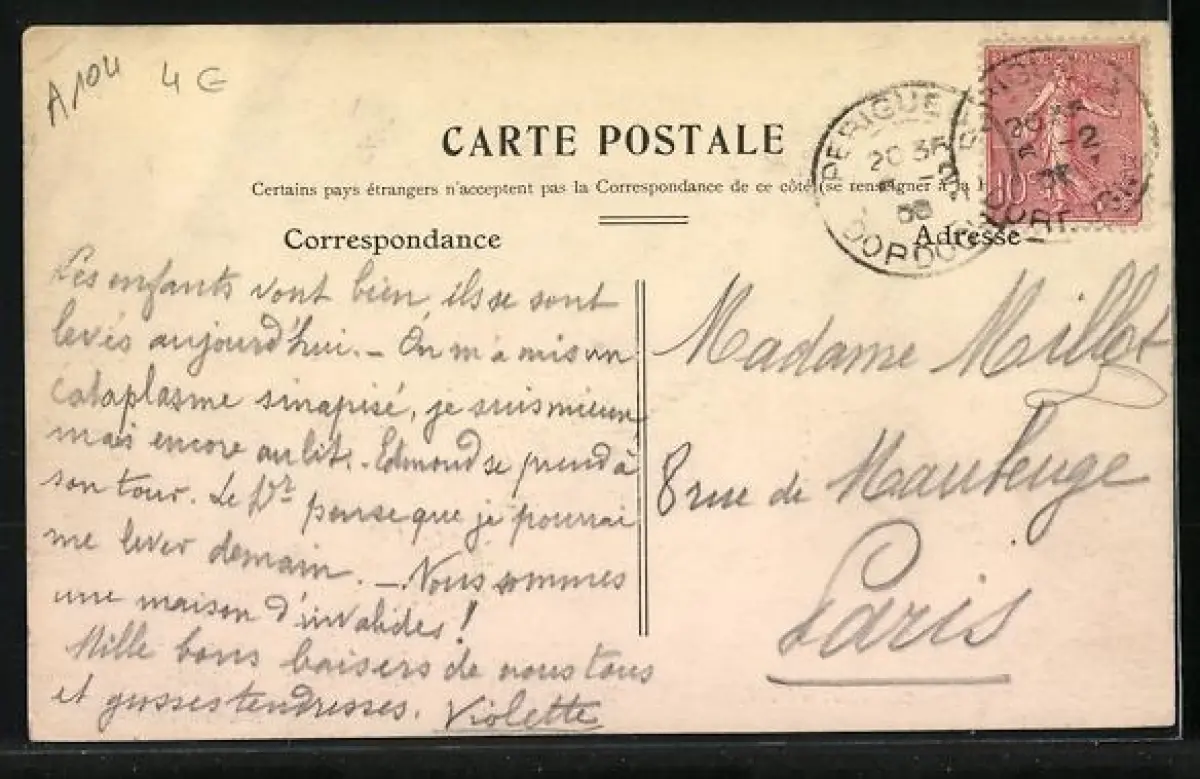 A104 4 €
CARTE POSTALE
Certains pays étrangers n'acceptent pas la Correspondance de ce côté (se renseigner à la
Correspondance
Adresse
PERIGUE
20 35
-2
DORDO
10
Les enfants vont bien, ils se sont
levés aujourd'hui. - On m'a mis un
cataplasme sinapisé, je suis mieux
mais encore au lit. - Edmond se prend à
son tour. Le Dr pense que je pourrai
me lever demain. - Nous sommes
une maison d'invalides !
Mille bons baisers de nous tous
et grosses tendresses. Violette
Madame Millot
8 rue de Maubeuge
Paris